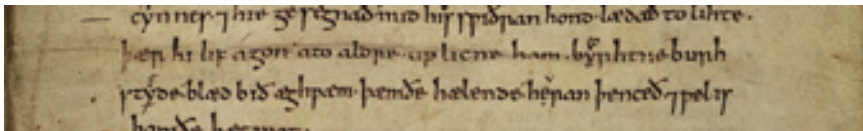 cynnes. ⁊ hie gesegnað mid his sƿiðran hond. lædað to lihte.
þær hi lif agon a to aldre. up licne ham. byrhtne burh
styde. blæd bið æghƿæm. þæmðe hælende heran þenceð ⁊ ƿel is